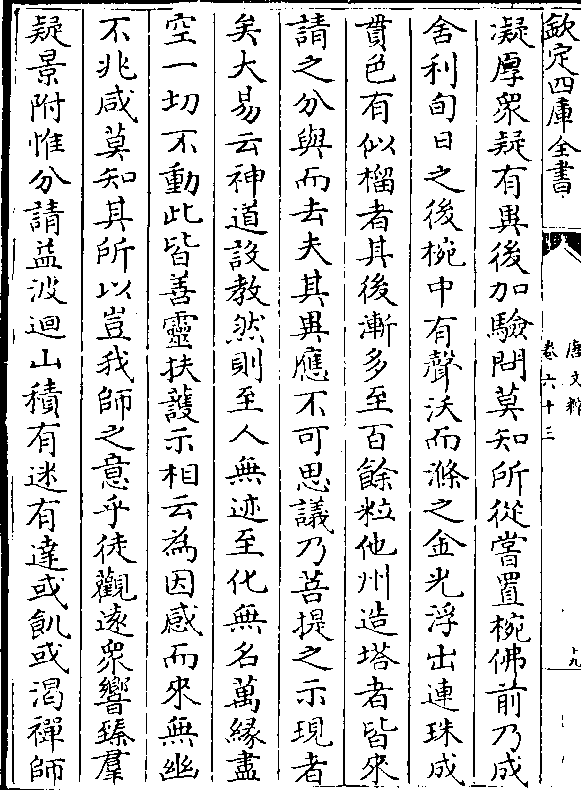 欽定四庫全書
唐文粹
卷六十三
十九
凝厚衆疑有異後加驗問莫知所從嘗置椀佛前乃成
舍利旬日之後椀中有聲沃而滌之金光浮出連珠成
貫色有似榴者其後漸多至百餘粒他州造塔者皆來
請之分與而去夫其異應不可思議乃菩提之示現者
矣大易云神道設教然則至人無迹至化無名萬緣盡
空一切不動此皆善靈扶護示相云為因感而來無幽
不兆咸莫知其所以豈我師之意乎徒觀遠衆響臻羣
疑景附惟分請益波迴山積有迷有達或飢或渴禪師